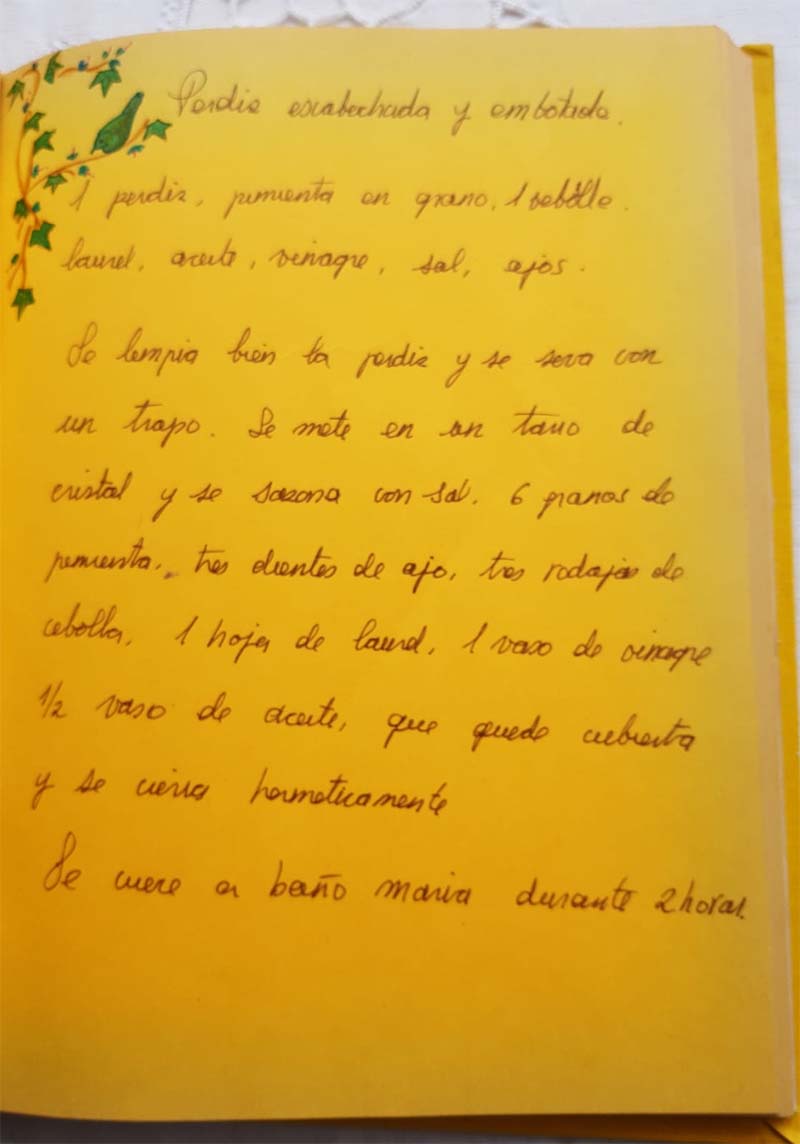 Perdiz escabechada y embotada.
1 perdiz, pimienta en grano, 1 cebolla.
laurel, aceite, vinagre, sal, ajos.
Se limpia bien la perdiz y se seca con
un trapo. Se mete en un tarro de
cristal y se sazona con sal, 6 granos de
pimienta, tres dientes de ajo, tres rodajas de
cebolla, 1 hoja de laurel, 1 vaso de vinagre
1/2 vaso de aceite, que quede cubierta
y se cierra hermeticamente
Se cuece a baño maria durante 2 horas.